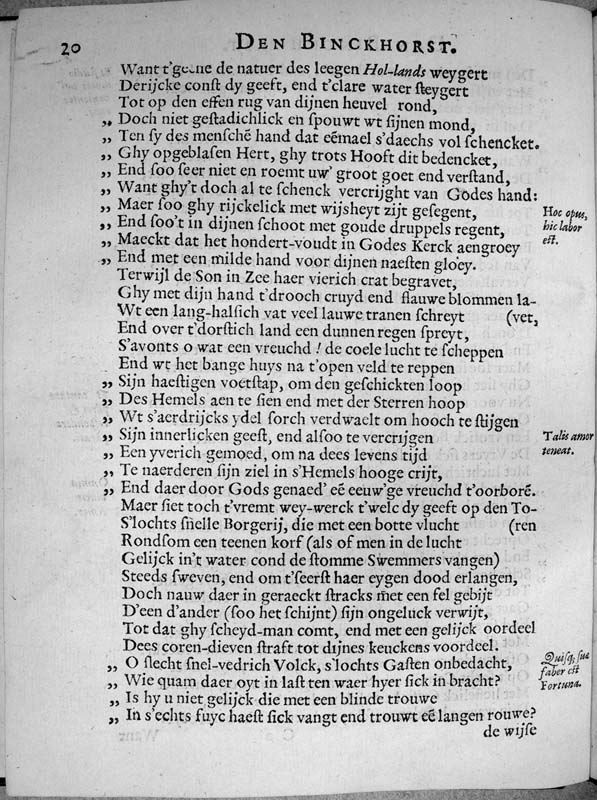 20 DEN BINCKHORST.
Want t'geene de natuer des leegen Hol-lands weygert
Derijcke conſt dy geeft, end t'clare water ſteygert
Tot op den effen rug van dijnen heuvel rond,
„ Doch niet geſtadichlick en ſpouwt wt ſijnen mond,
„ Ten ſy des menſchē hand dat eēmael s'daechs vol ſchencket.
„ Ghy opgeblaſen Hert, ghy trots Hooft dit bedencket,
„ End ſoo ſeer niet en roemt uw' groot goet end verſtand,
„ Want ghy't doch al te ſchenck vercrijght van Godes hand:
„ Maer ſoo ghy rijckelick met wijsheyt zijt geſegent,
Hoc opus,
hic labor
eſt.
„ End ſoo't in dijnen ſchoot met goude druppels regent,
„ Maeckt dat het hondert-voudt in Godes Kerck aengroey
„ End met een milde hand voor dijnen naeſten gloey.
Terwijl de Son in Zee haer vierich crat begravet,
Ghy met dijn hand t'drooch cruyd end flauwe blommen la-
Wt een lang-halſich vat veel lauwe tranen ſchreyt (vet,
End over t'dorſtich land een dunnen regen ſpreyt,
S'avonts o wat een vreuchd! de coele lucht te ſcheppen
End wt het bange huys na t'open veld te reppen
„ Sijn haeſtigen voetſtap, om den geſchickten loop
„ Des Hemels aen te ſien end met der Sterren hoop
„ Wt s'aerdrijcks ydel ſorch verdwaelt om hooch te ſtijgen
„ Sijn innerlicken geeſt, end alſoo te vercrijgen
Talis amor
teneat.
„ Een yverich gemoed, om na dees levens tijd
„ Te naerderen ſijn ziel in s'Hemels hooge crijt,
„ End daer door Gods genaed' eē eeuw'ge vreuchd t'oorborē.
Maer ſiet toch t'vremt wey-werck t'welc dy geeft op den To-
S'lochts ſnelle Borgerij, die met een botte vlucht (ren
Rondſom een teenen korf (als of men in de lucht
Gelijck in't water cond de ſtomme Swemmers vangen)
Steeds ſweven, end om t'ſeerſt haer eygen dood erlangen,
Doch nauw daer in geraeckt ſtracks met een fel gebijt
D'een d'ander (ſoo het ſchijnt) ſijn ongeluck verwijt,
Tot dat ghy ſcheyd-man comt, end met een gelijck oordeel
Dees coren-dieven ſtraft tot dijnes keuckens voordeel.
„ O ſlecht ſnel-vedrich Volck, s'lochts Gaſten onbedacht,
Quiſq; ſuæ
faber eſt
Fortunæ.
„ Wie quam daer oyt in laſt ten waer hyer ſick in bracht?
„ Is hy u niet gelijck die met een blinde trouwe
„ In s'echts fuyc haeſt ſick vangt end trouwt eē langen rouwe?
de wijſe